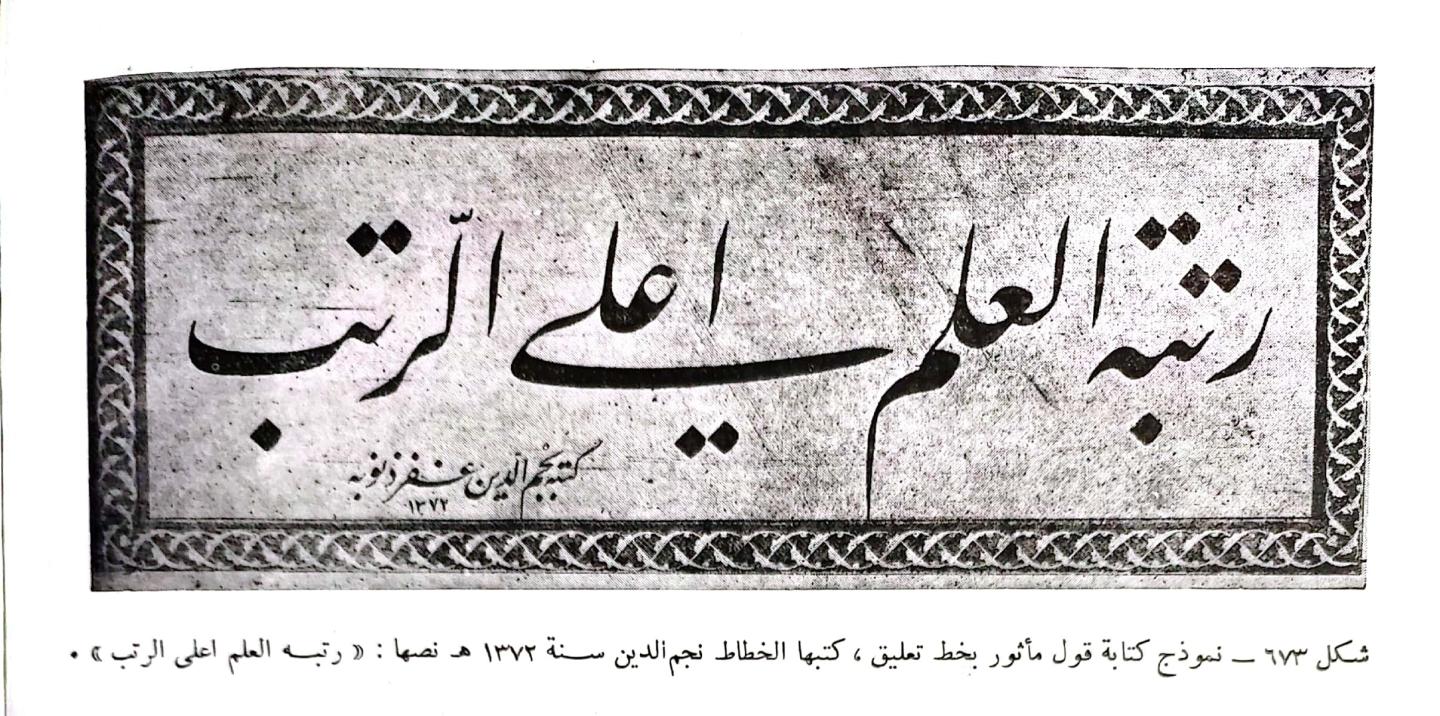 رتبة العلم اعلى الرتب
كتبه نجم الدين غفر ذنوبه
١٣٧٢
شكل ٦٧٣ — نموذج كتابة قول مأثور بخط تعليق ، كتبها الخطاط نجم‌الدين سنة ١٣٧٢ هـ نصها : « رتبه العلم اعلى الرتب » .